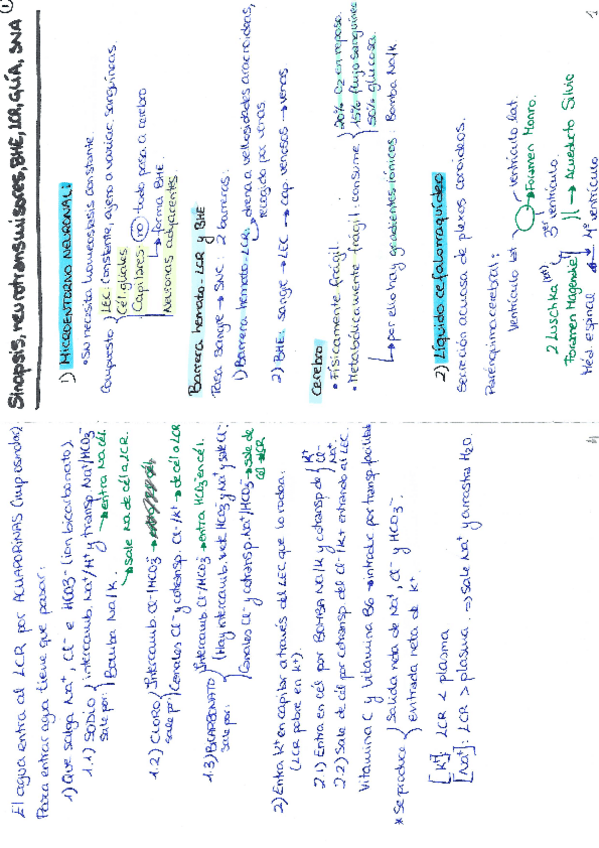 ①
Sinapsis, neurotransmisores, BHE, LCR, GLÍA, SNA
1) MICROENTORNO NEURONAL:
• Se necesita homeostasis constante.
Compuesto LEC: constante, ajeno a variac. sanguíneas.
Cél. gliales.
Capilares: no todo pasa a cerebro
↳ forma BHE.
Neuronas adyacentes
Barrera hemato-LCR y BHE
Pasa sangre → SNC: 2 barreras:
1) Barrera hemato-LCR: drena a vellosidades aracnoideas,
recogido por venas
2) BHE: sangre → LEC → cap venosos → venas
Cerebro
• Físicamente frágil.
• Metabólicamente frágil: consume 20% O2 en reposo.
15% flujo sanguíneo
50% glucosa.
↳ por ello hay gradientes iónicos: Bomba Na/K
2) Líquido cefalorraquídeo
Secreción acuosa de plexos coroideos.
Parénquima cerebral:
Ventrículo lat ventrículo lat.
→ Foramen Monro.
3er ventrículo.
2 Luschka
Foramen Magendie → Acueducto Silvio
Méd. espinal ← 4º ventrículo
1
El agua entra al LCR por ACUAPORINAS
Para entrar agua tiene que pasar:
1) Que salga Na+, Cl- e HCO3- (ion bicarbonato)
1.1) SODIO sale por: intercamb. Na+/H+ y transp. Na+/HCO3- → entra Na cél.
Bomba Na/K. → sale Na de cél a LCR.
1.2) CLORO sale por: Intercamb. Cl-/HCO3- →
Canales Cl- y cotransp. Cl-/K+ → de cél a LCR
1.3) BICARBONATO sale por: Intercamb Cl-/HCO3- → entra HCO3- en cél.
(Hay intercamb.
Canales Cl- y cotransp. Na+/HCO3- → sale de cél → LCR
2) Entra K+ en capilar a través del LEC que lo rodea:
(LCR pobre en K+).
2.1) Entra en cél por BOMBA Na/K y cotransp de K+ Cl- Na+
2.2) Sale de cél por cotransp del Cl-/K+ entrando al LEC.
Vitamina C y vitamina B6 → introduc por transp. facilitado
* Se produce salida neta de Na+, Cl- y HCO3-.
entrada neta de K+
[K+]: LCR < plasma
[Na+]: LCR > plasma. → Sale Na+ y arrastra H2O.